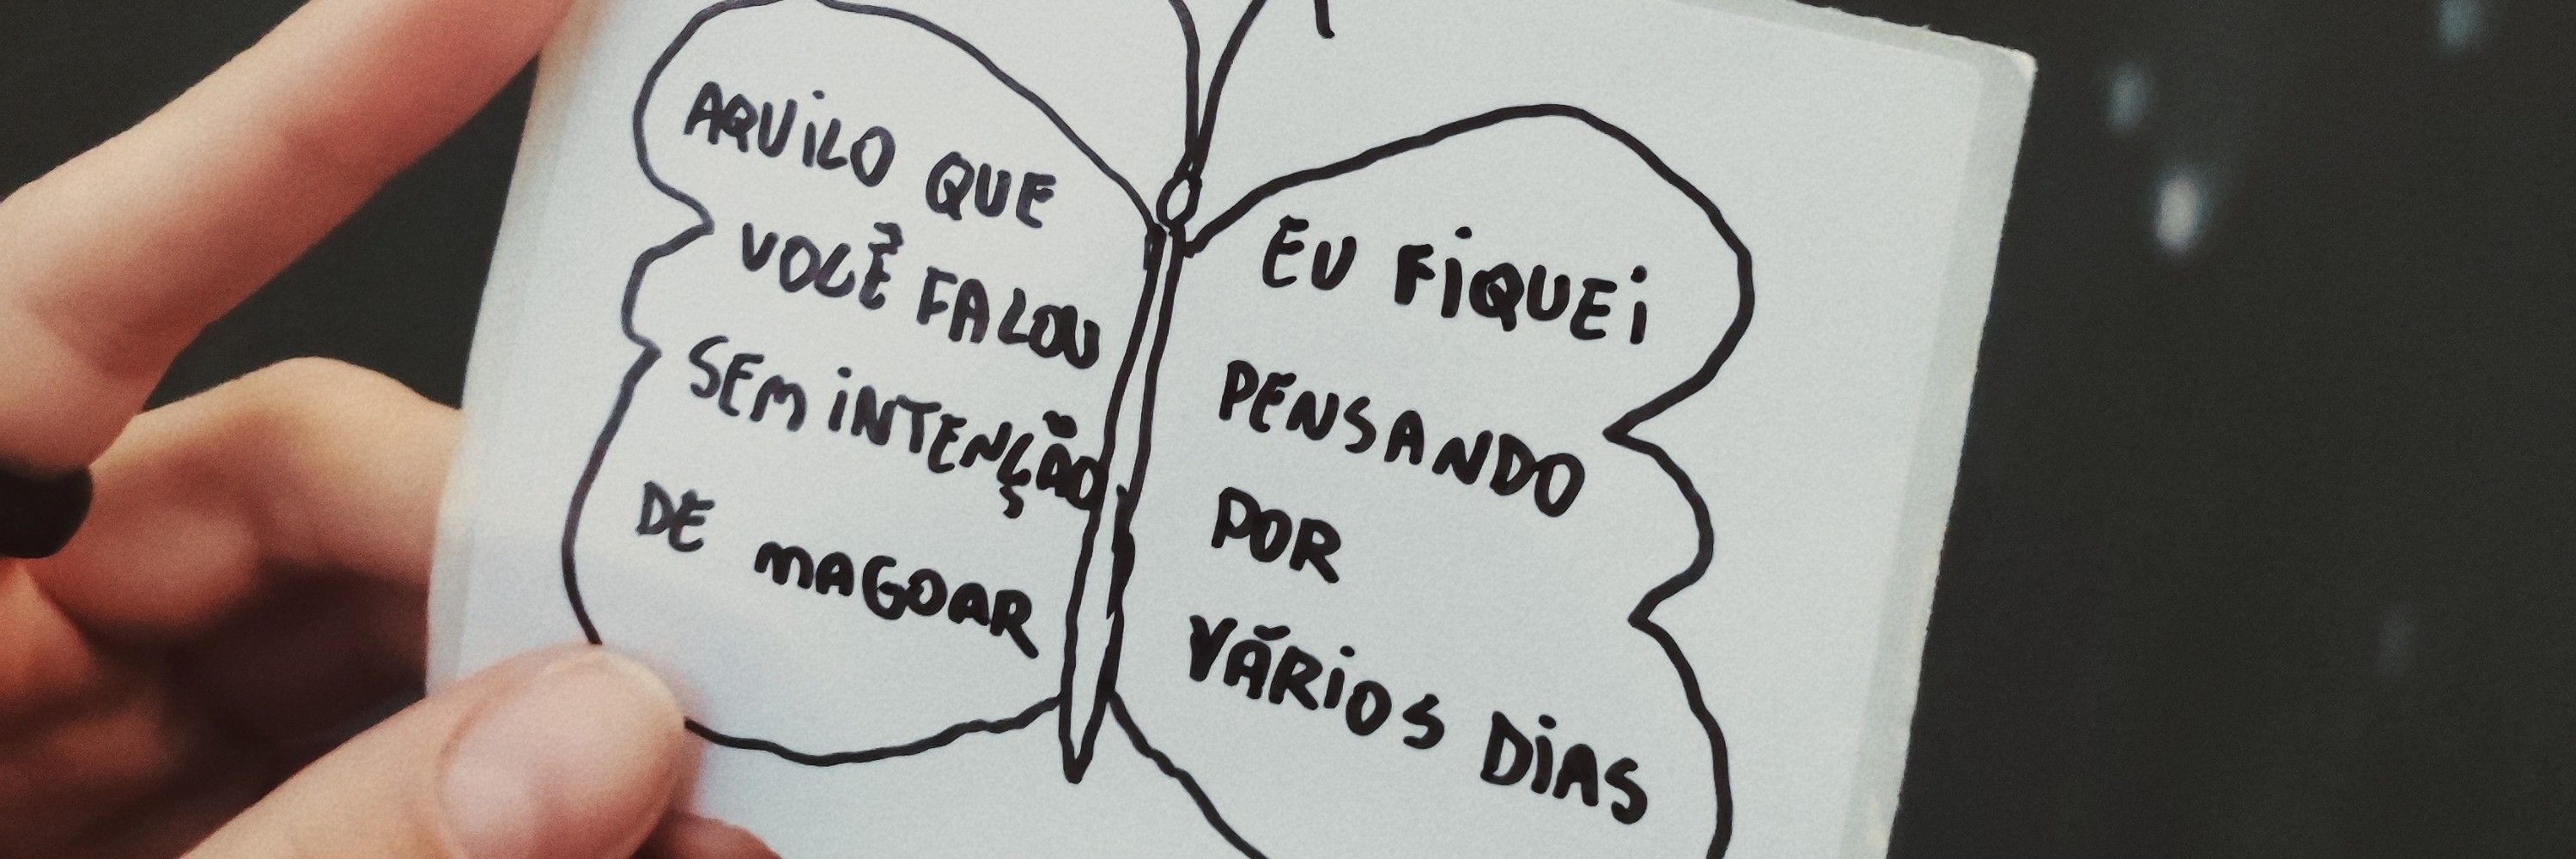 AQUILO QUE
VOCÊ FALOU
SEM INTENÇÃO
DE MAGOAR
EU FIQUEI
PENSANDO
POR
VÁRIOS DIAS